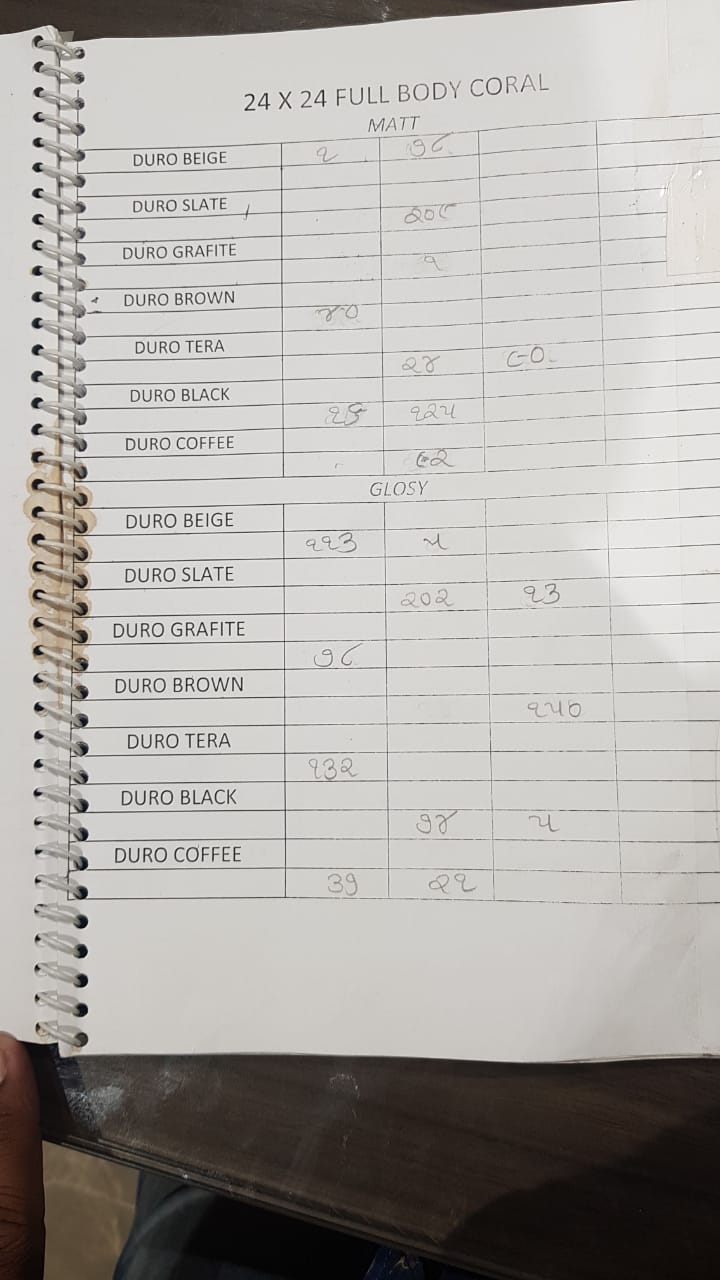 24 X 24 FULL BODY CORAL
MATT
DURO BEIGE ૧ ૭૮
DURO SLATE
૨૦૮
DURO GRAFITE
૧
DURO BROWN
૪૦
DURO TERA
૨૪ ૯૦
DURO BLACK
૧૨૫
DURO COFFEE
૯૨
GLOSY
DURO BEIGE
૧૧૩ ૫
DURO SLATE
૨૦૨ ૧૩
DURO GRAFITE
૭૮
DURO BROWN
૧૫૦
DURO TERA
૧૩૨
DURO BLACK
૭૪ ૫
DURO COFFEE
૩૭ ૨૧